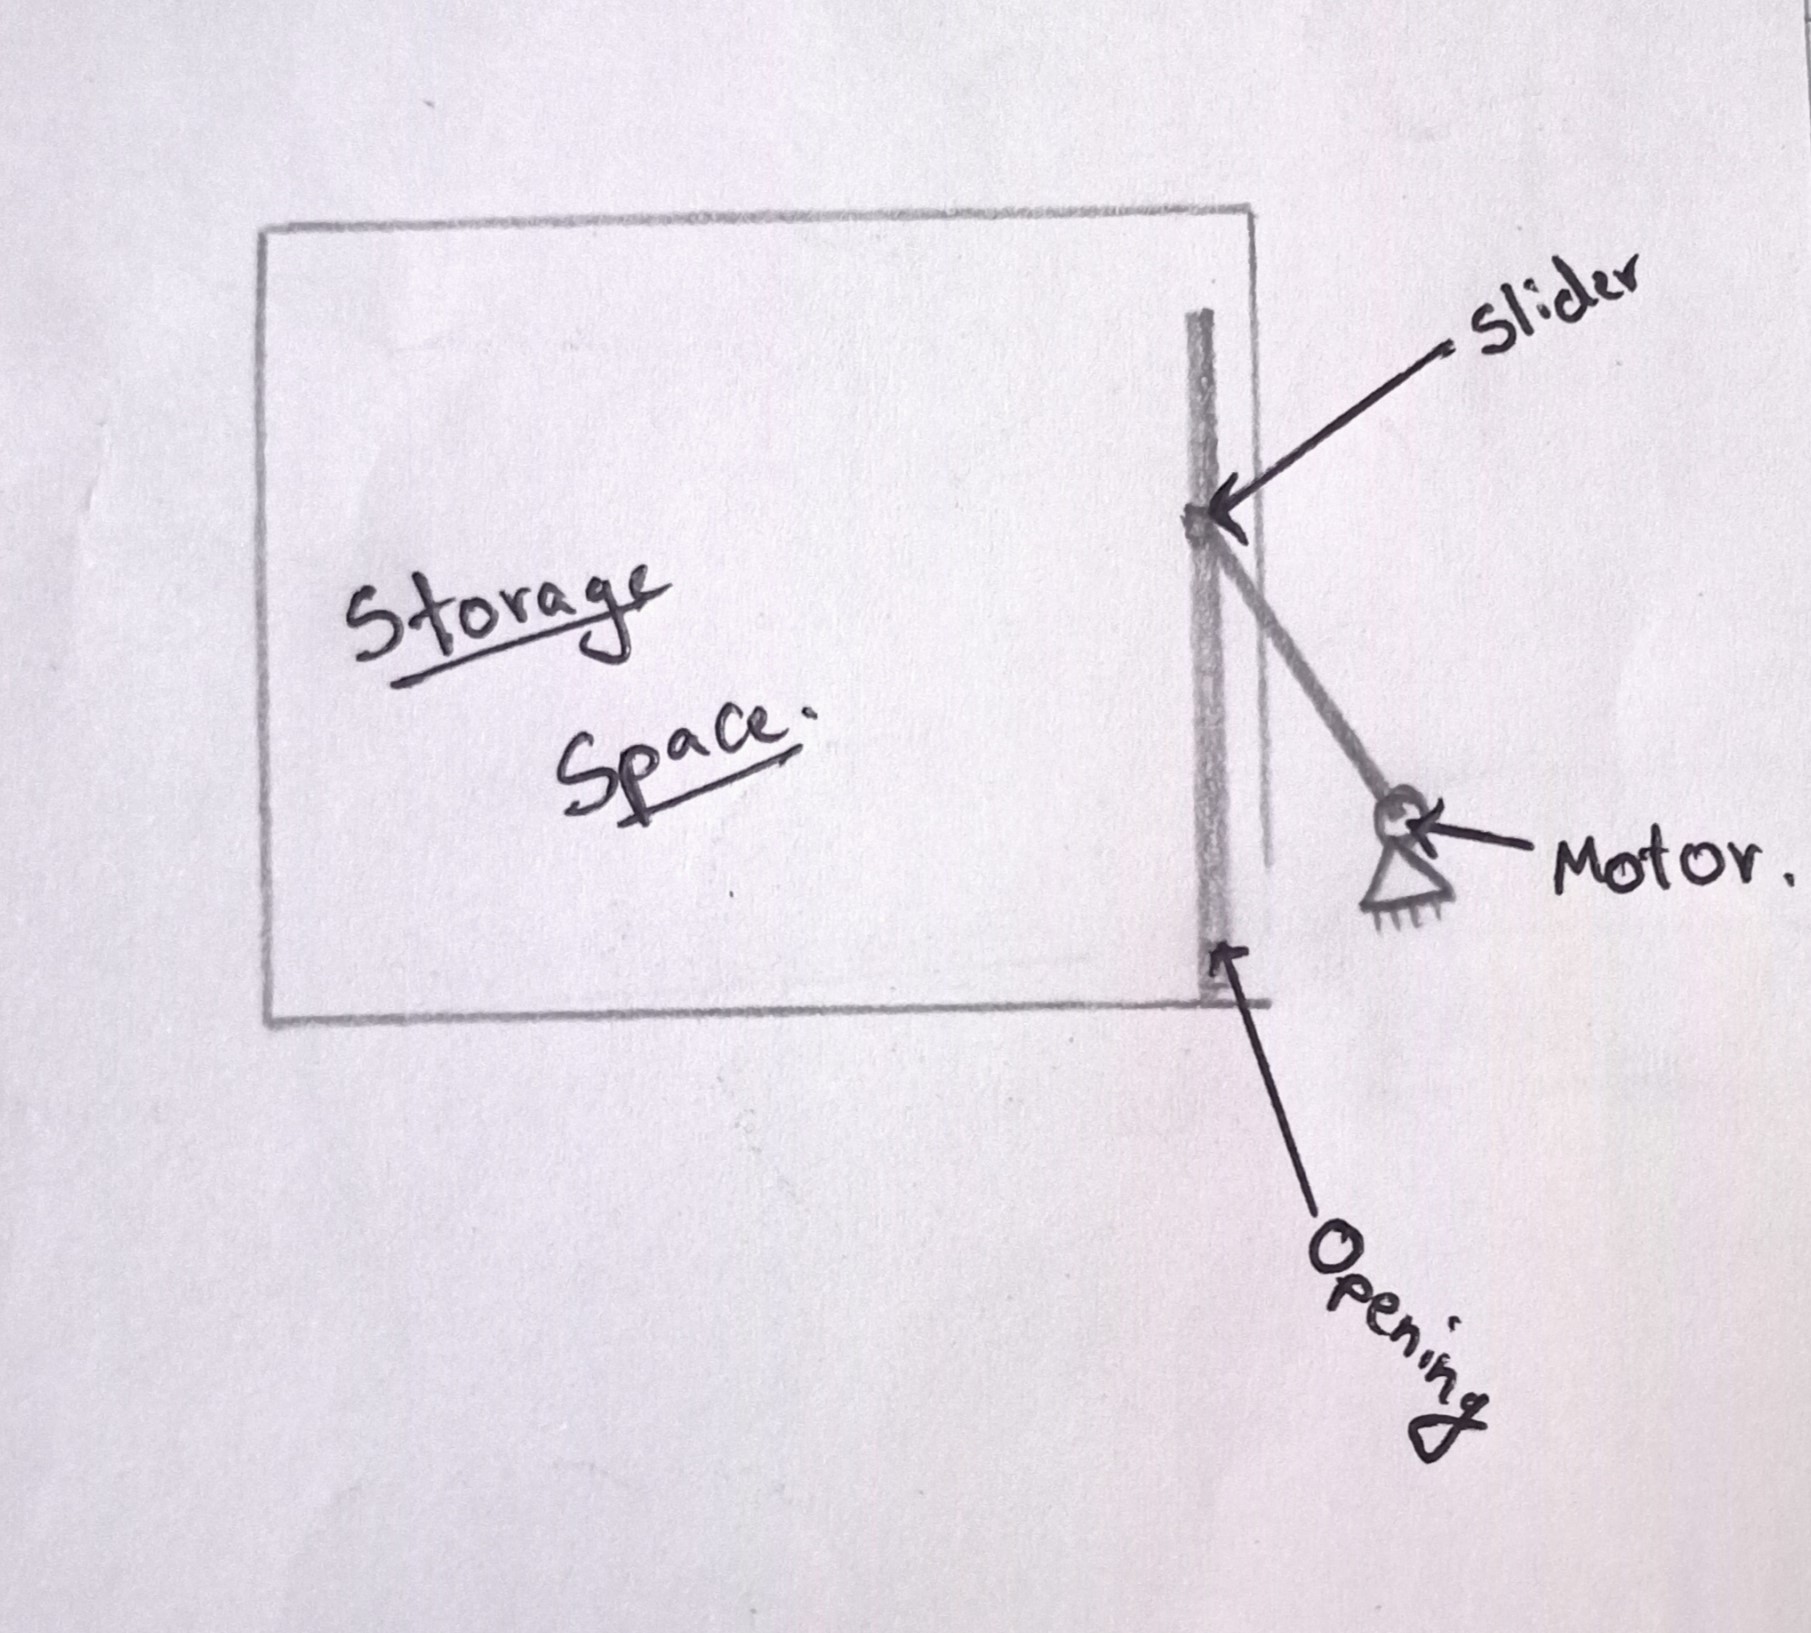 Slider
Storage
Space.
Motor.
Opening